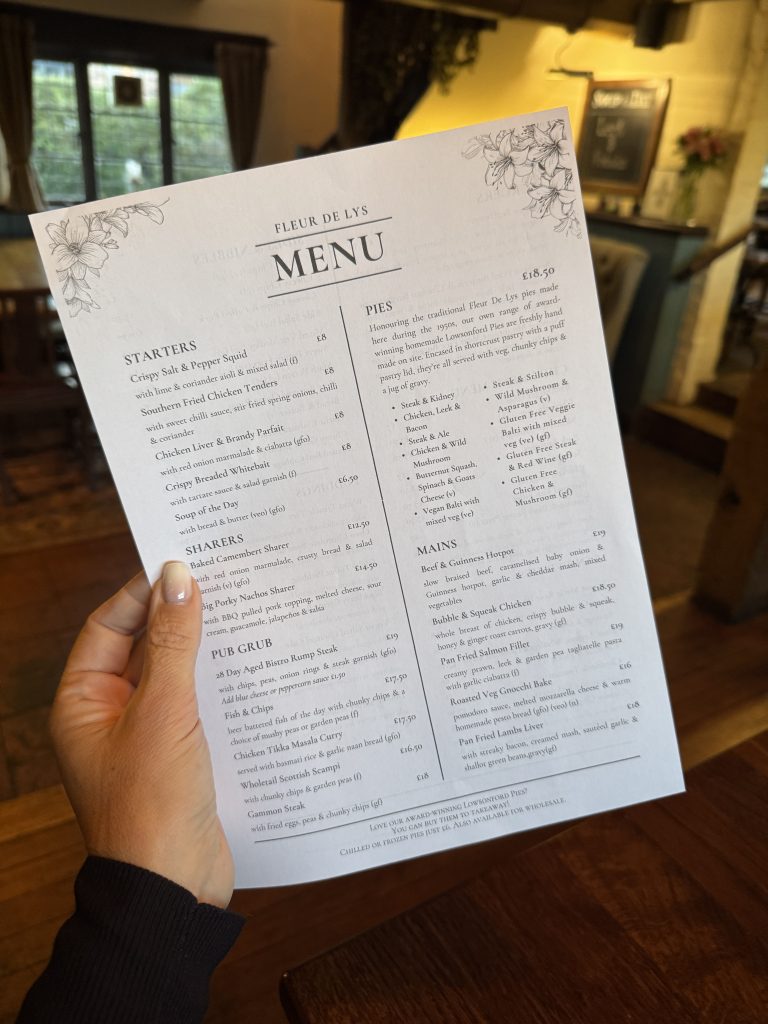 FLEUR DE LYS
MENU
STARTERS
£8
Crispy Salt & Pepper Squid
with lime & coriander aioli & mixed salad (f)
£8
Southern Fried Chicken Tenders
with sweet chilli sauce, stir fried spring onions, chilli
& coriander
£8
Chicken Liver & Brandy Parfait
with red onion marmalade & ciabatta (gfo)
£8
Crispy Breaded Whitebait
with tartare sauce & salad garnish (f)
£6.50
Soup of the Day
with bread & butter (veo) (gfo)
SHARERS
£12.50
Baked Camembert Sharer
with red onion marmalade, crusty bread & salad
garnish (v) (gfo)
£14.50
Big Porky Nachos Sharer
with BBQ pulled pork topping, melted cheese, sour
cream, guacamole, jalapeños & salsa
PUB GRUB
£19
28 Day Aged Bistro Rump Steak
with chips, peas, onion rings & steak garnish (gfo)
Add blue cheese or peppercorn sauce £1.50
£17.50
Fish & Chips
beer battered fish of the day with chunky chips & a
choice of mushy peas or garden peas (f)
£17.50
Chicken Tikka Masala Curry
served with basmati rice & garlic naan bread (gfo)
£16.50
Wholetail Scottish Scampi
with chunky chips & garden peas (f)
£18
Gammon Steak
with fried eggs, peas & chunky chips (gf)
£18.50
PIES
Honouring the traditional Fleur De Lys pies made
here during the 1950s, our own range of award-
winning homemade Lowsonford Pies are freshly hand
made on site. Encased in shortcrust pastry with a puff
pastry lid, they're all served with veg, chunky chips &
a jug of gravy.
• Steak & Kidney
• Chicken, Leek &
Bacon
• Steak & Ale
• Chicken & Wild
Mushroom
• Butternut Squash,
Spinach & Goats
Cheese (v)
• Vegan Balti with
mixed veg (ve)
• Steak & Stilton
• Wild Mushroom &
Asparagus (v)
• Gluten Free Veggie
Balti with mixed
veg (ve) (gf)
• Gluten Free Steak
& Red Wine (gf)
• Gluten Free
Chicken &
Mushroom (gf)
MAINS
£19
Beef & Guinness Hotpot
slow braised beef, caramelised baby onion &
Guinness hotpot, garlic & cheddar mash, mixed
vegetables
£18.50
Bubble & Squeak Chicken
whole breast of chicken, crispy bubble & squeak,
honey & ginger roast carrots, gravy (gf)
£19
Pan Fried Salmon Fillet
creamy prawn, leek & garden pea tagliatelle pasta
with garlic ciabatta (f)
£16
Roasted Veg Gnocchi Bake
pomodoro sauce, melted mozzarella cheese & warm
homemade pesto bread (gfo) (veo) (n)
£18
Pan Fried Lambs Liver
with streaky bacon, creamed mash, sautéed garlic &
shallot green beans,gravy(gf)
LOVE OUR AWARD-WINNING LOWSONFORD PIES?
YOU CAN BUY THEM TO TAKEAWAY!
CHILLED OR FROZEN PIES JUST £6. ALSO AVAILABLE FOR WHOLESALE.